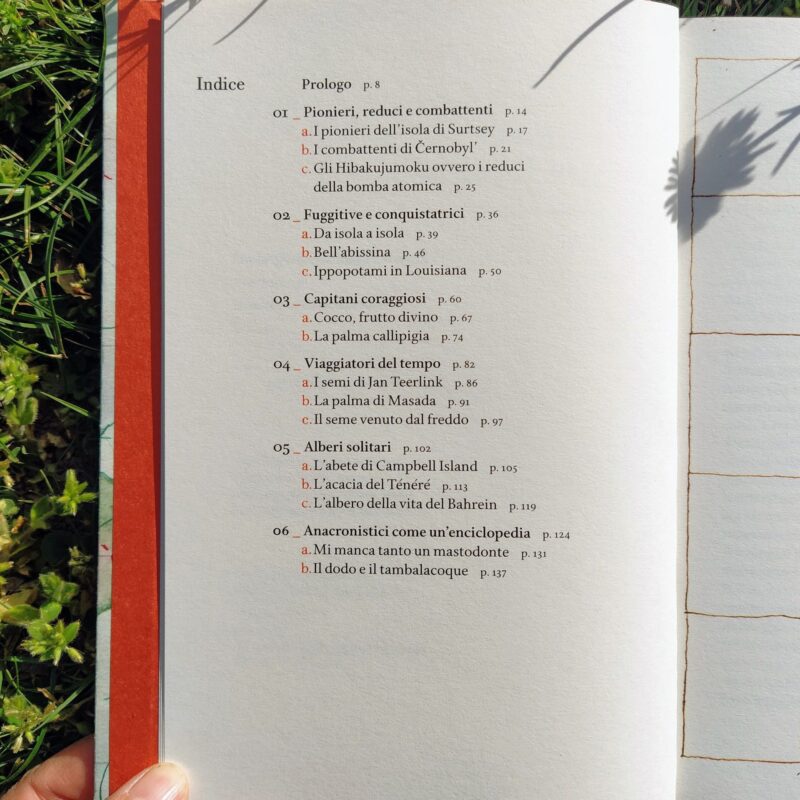 Indice Prologo p. 8
01 _ Pionieri, reduci e combattenti p. 14
a. I pionieri dell'isola di Surtsey p. 17
b. I combattenti di Černobyl' p. 21
c. Gli Hibakujumoku ovvero i reduci
della bomba atomica p. 25
02 _ Fuggitive e conquistatrici p. 36
a. Da isola a isola p. 39
b. Bell'abissina p. 46
c. Ippopotami in Louisiana p. 50
03 _ Capitani coraggiosi p. 60
a. Cocco, frutto divino p. 67
b. La palma callipigia p. 74
04 _ Viaggiatori del tempo p. 82
a. I semi di Jan Teerlink p. 86
b. La palma di Masada p. 91
c. Il seme venuto dal freddo p. 97
05 _ Alberi solitari p. 102
a. L'abete di Campbell Island p. 105
b. L'acacia del Ténéré p. 113
c. L'albero della vita del Bahrein p. 119
06 _ Anacronistici come un'enciclopedia p. 124
a. Mi manca tanto un mastodonte p. 131
b. Il dodo e il tambalacoque p. 137